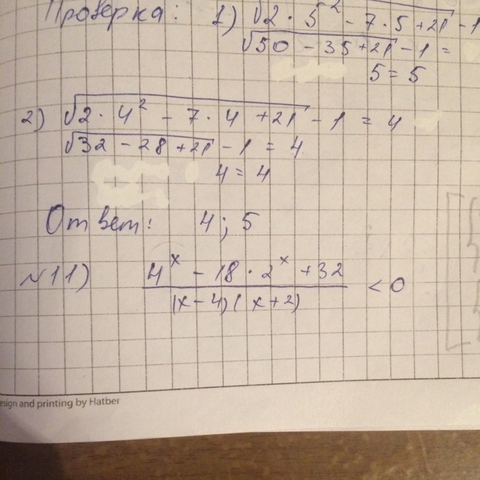 Проверка: 1) √2 · 5² - 7 · 5 + 21 - 1
√50 - 35 + 21 - 1 =
5 = 5
2) √2 · 4² - 7 · 4 + 21 - 1 = 4
√32 - 28 + 21 - 1 = 4
4 = 4
Ответ: 4; 5
№11) 4ˣ - 18 · 2ˣ + 32 < 0
(x - 4)(x + 2)
esign and printing by Hatber